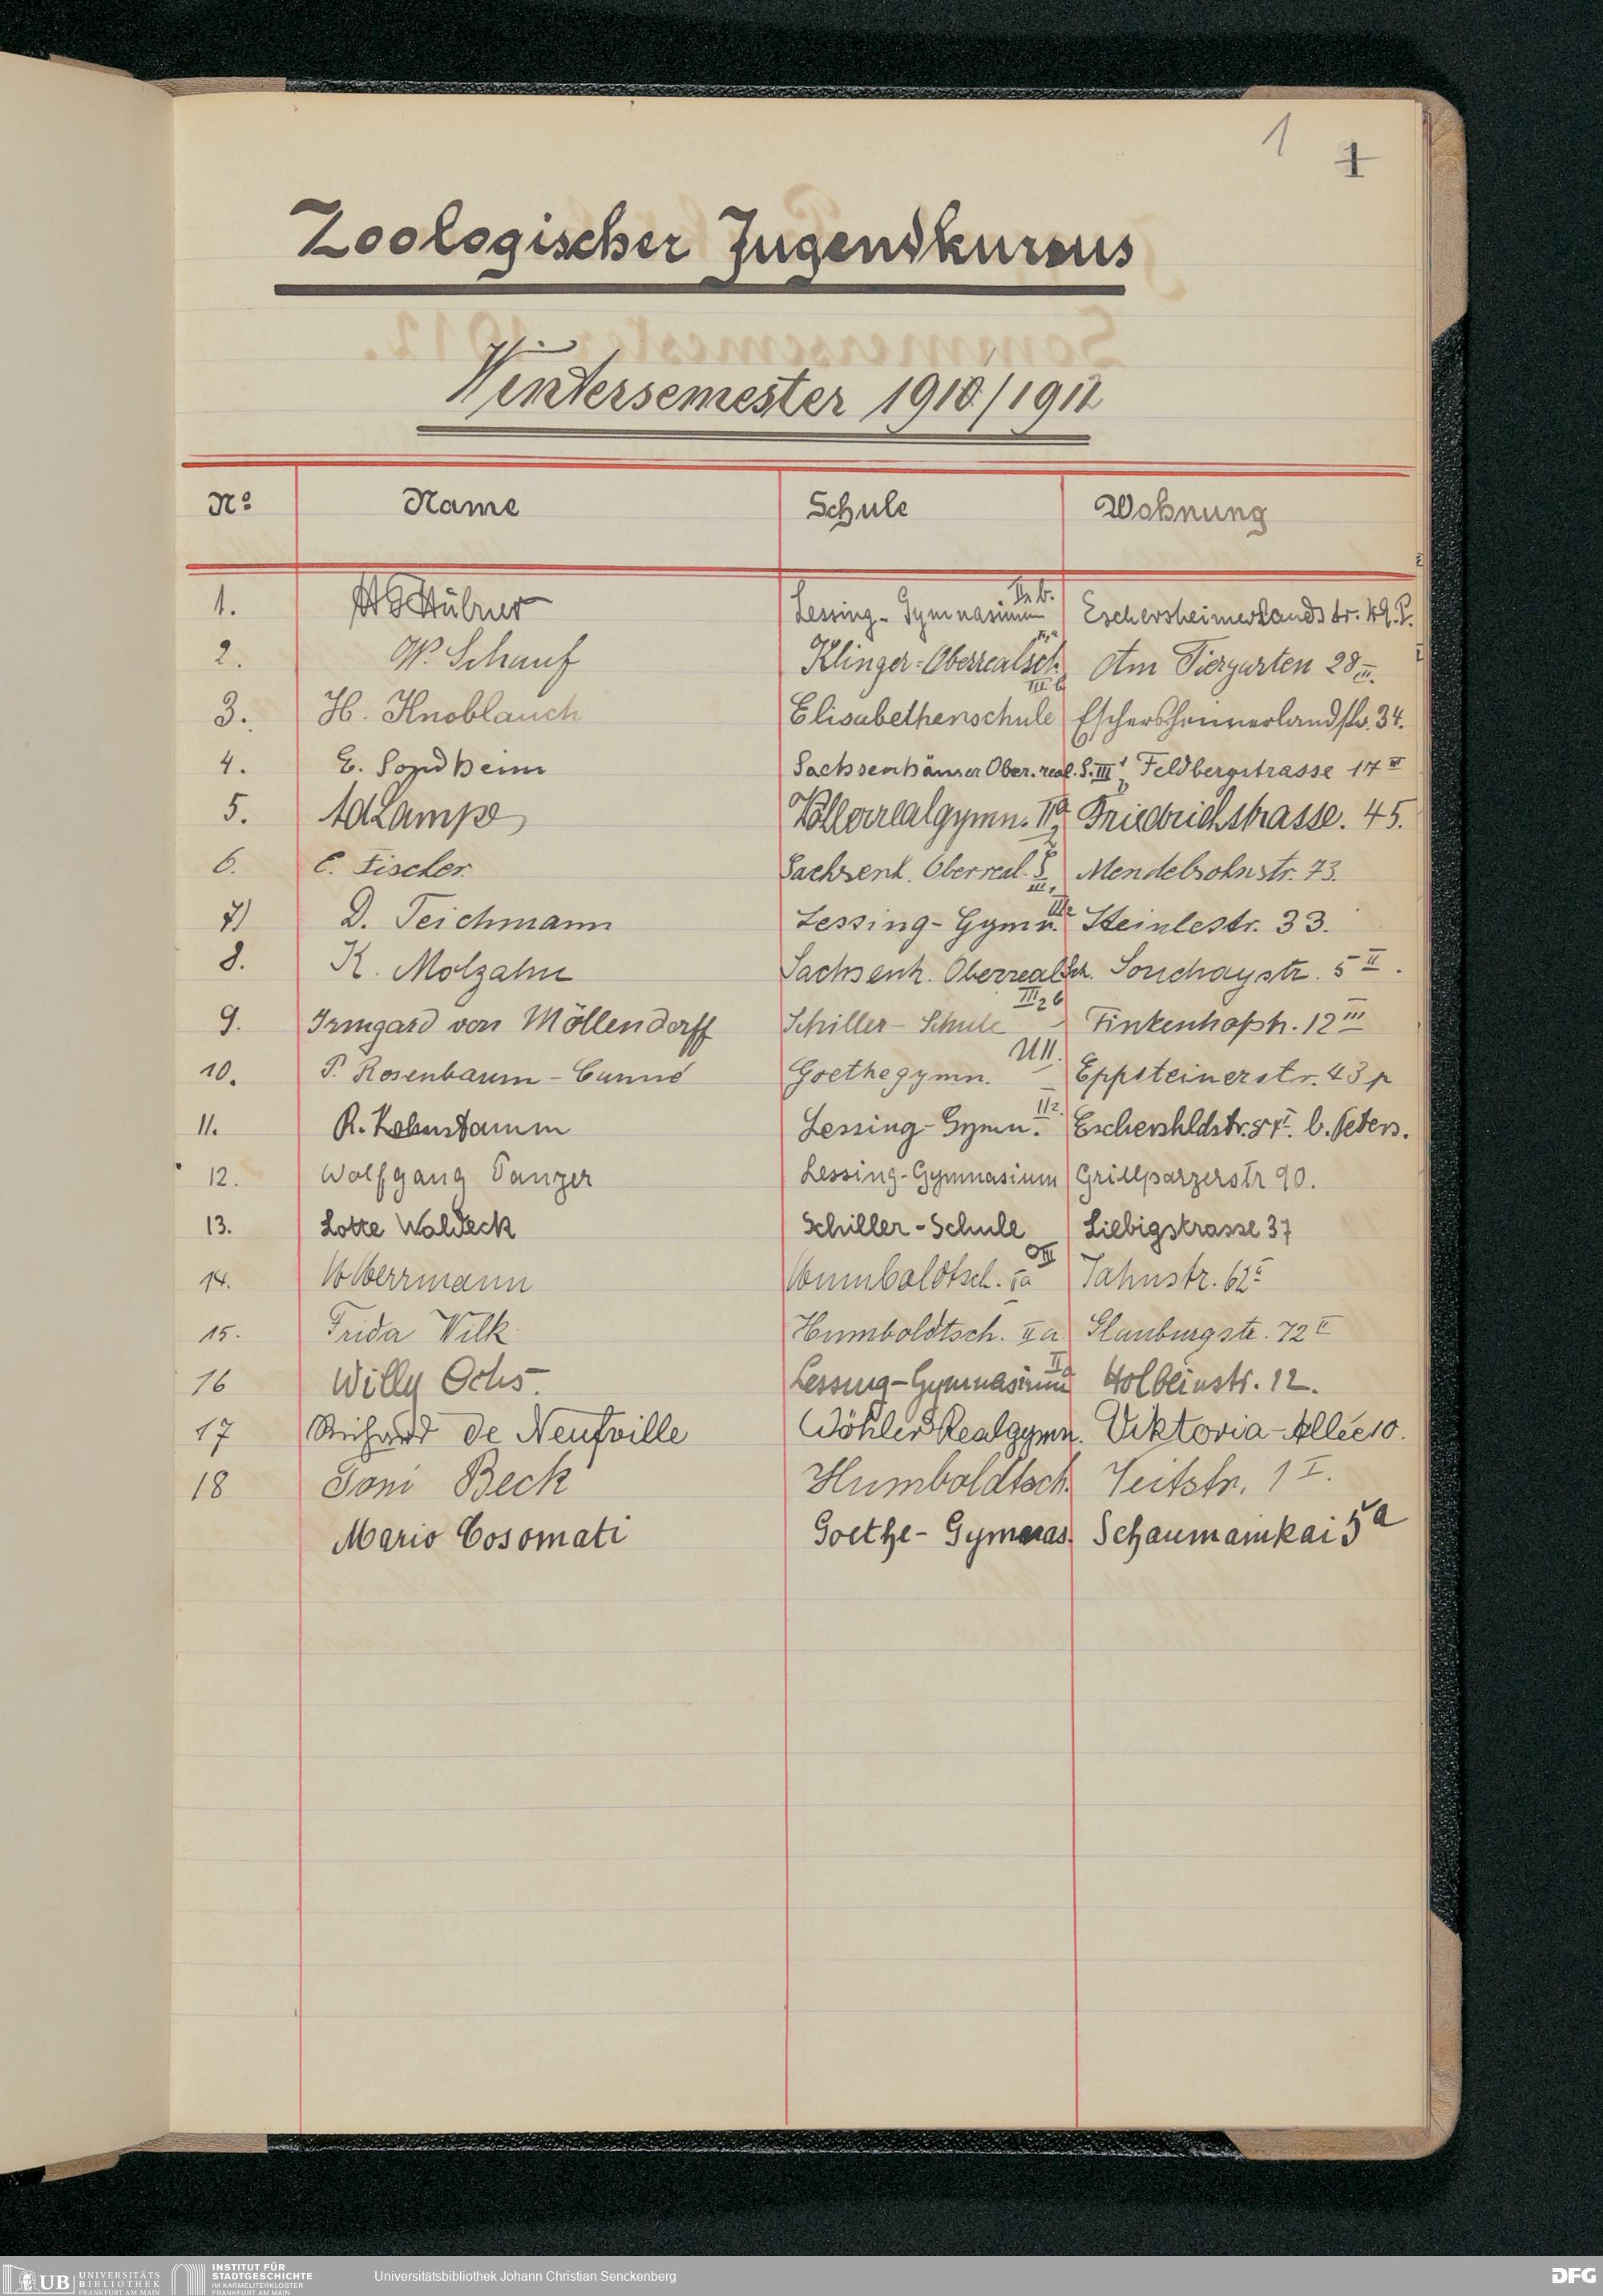 1 1
Zoologischer Jugendkursus
Wintersemester 1910/1911
No Name Schule Wohnung
1. Hübner Lessing-Gymnasium Eschersheimerlandstr. 49. P.
2. W. Schauf Klinger-Oberrealsch. Am Tiergarten 28 II.
3. H. Knoblauch Elisabethenschule III b Eschersheimerlandstr. 34.
4. E. Sondheim Sachsenhäuser Ober.real.S. III 1 Feldbergstrasse 17 III
5. Ad Lampe Wöhlerrealgymn. IIa Friedrichstrasse. 45.
6. E. Fischer Sachsenh. Oberreal. S. Mendelsohnstr. 73.
7) D. Teichmann Lessing-Gymn. Steinlestr. 33.
8. K. Molzahn Sachsenh. Oberrealsch. Souchaystr. 5 II.
9. Irmgard von Möllendorff Schiller-Schule III 2 b Finkenhofstr. 12 III
10. P. Rosenbaum-Canné Goethegymn. UII. Eppsteinerstr. 43 p
11. R. Kohnstamm Lessing-Gymn. II 2. Eschershldstr. 8 I. b. Peters.
12. Wolfgang Panzer Lessing-Gymnasium Grillparzerstr 90.
13. Lotte Waldeck Schiller-Schule Liebigstrasse 37
14. Herrmann Humboldtsch. Ia Jahnstr. 62 I
15. Frida Wilk Humboldtsch. II a Glauburgstr. 72 II
16 Willy Ochs Lessing-Gymnasium II Holbeinstr. 12.
17 Richard de Neufville Wöhler Realgymn. Viktoria-Allee 10.
18 Toni Beck Humboldtsch. Veitstr. 1 I.
Mario Cosomati Goethe-Gymnas. Schaumainkai 5a
UB UNIVERSITÄTS BIBLIOTHEK FRANKFURT AM MAIN
INSTITUT FÜR STADTGESCHICHTE IM KARMELITERKLOSTER FRANKFURT AM MAIN
Universitätsbibliothek Johann Christian Senckenberg
DFG